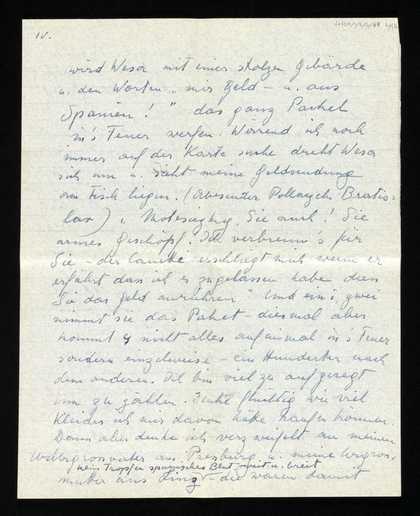 IV.
wird Wesa mit einer stolzen Gebärde
u. den Worten „mir Geld – u. aus
Spanien!" das ganz Packet
in's Feuer werfen. Wärend ich noch
immer auf der Karte suche dreht Wesa
sich um u. sieht meine Geldsendung
am Tisch liegen. (Absender Bratis-
lav) Sie auch! Sie
armes Geschöpf! Ich verbrenne's für
Sie – der erschlagt mich wenn er
erfährt dass ich es zugelassen habe dass
Sie das Geld anrühren. Und eins, zwei
nimmt sie das Paket – diesmal aber
kommt nicht alles auf einmal in's Feuer
sondern einzelweise – ein Hunderter nach
dem anderen. Ich bin viel zu aufgeregt
um zu zählen. Denke flüchtig wie viel
Kleider ich mir davon hätte kaufen können.
Dann aber denke ich verzweifelt an meinen
Urgrossvater aus Pressburg u. meine Urgros-
kein Tropfen spanisches Blut weit u. breit
mutter aus Linz – die waren damit